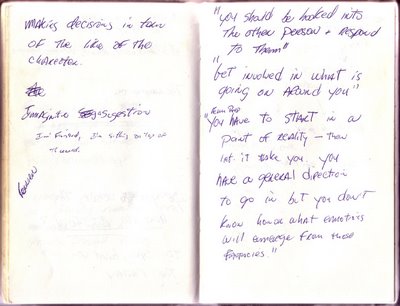 making decisions in term
of the life of the
character.
Imaginative Sugestion
I'm finished, I'm sitting on top of
"You should be hooked into
the other person + respond
to them"
"get involved in what is
going on around you"
"You have to START in a
point of reality - then
let it take you. you
have a general direction
to go in but you don't
know how or what emotions
will emerge from those
fantasies."